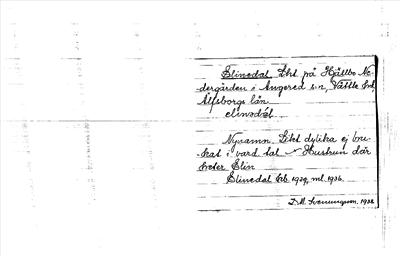 Elinedal Lht på Hjällbo Ne-
dergården i Angered sn, Vättle hd,
Älfsborgs län.
elinsdäl.
Nynamn. Lht dylika ej bru-
kat i vard. tal. Hustrun där
heter Elin
Elinedal Eb. 1929, ml. 1936.
D. M. Svenningson, 1938